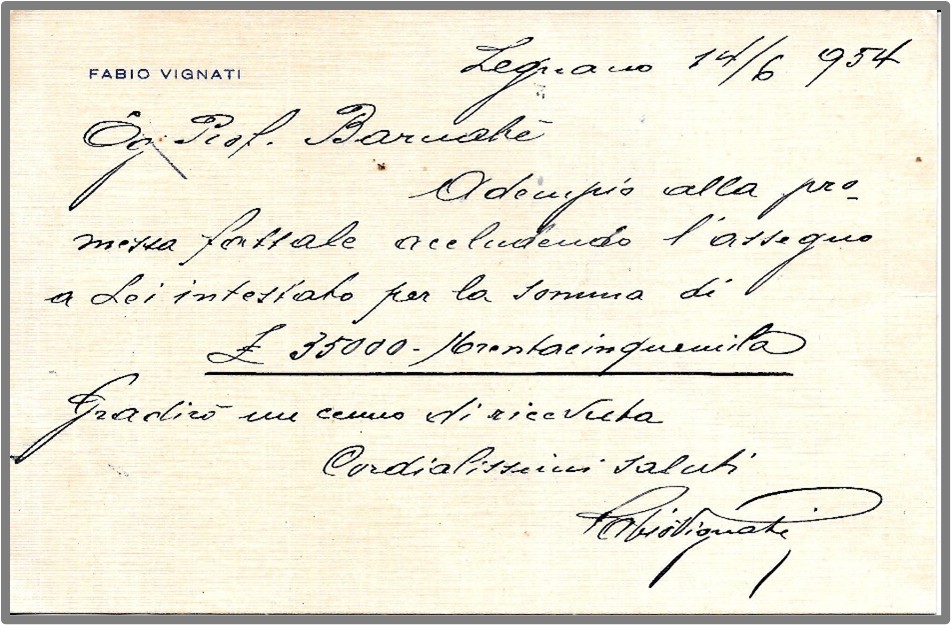 FABIO VIGNATI
Legnano 14/6 954
Eg. Prof. Barnabè
Adempio alla pro-
messa fattale accludendo l'assegno
a Lei intestato per la somma di
£ 35000 - /trentacinquemila
Gradirò un cenno di ricevuta
Cordialissimi saluti
Fabio Vignati